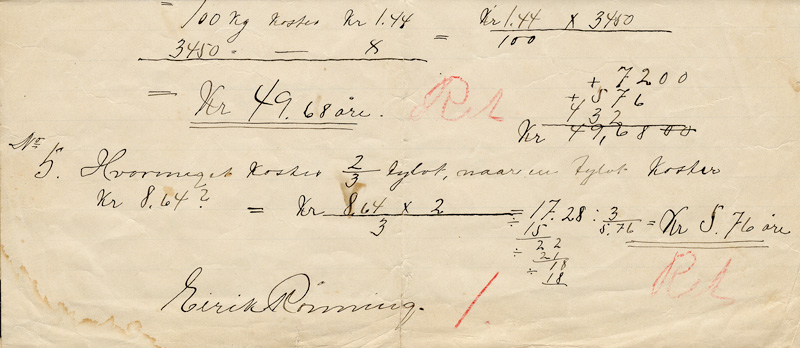 = 100 Kg Koster Kr 1.44 = Kr 1.44 x 3450
3450 " — x 100
= Kr 49.68 øre. Rt
+ 7200
+ 576
432
Kr 49,6800
No 5. Hvormeget Koster 2/3 tylvt, naar en tylvt Koster
Kr 8.64? = Kr 8.64 x 2 / 3 = 17.28 : 3 = Kr 5.76 øre
5.76
÷ 15
22
÷ 21
18
÷ 18
Rt
Eirik Rønning. 1.